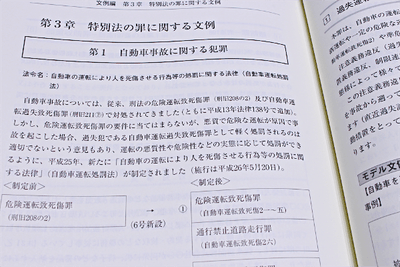 文例編 第3章 特別法の罪に関する文例
第3章 特別法の罪に関する文例
第1 自動車事故に関する犯罪
法令名:自動車の運転により人を死傷させる行為等の処罰に関する法律(自動車運転処罰
法)
自動車事故については、従来、刑法の危険運転致死傷罪(刑旧208の2)及び自動車運
転過失致死傷罪(刑旧211②)で対処されてきました(ともに平成13年法律138号で追加)。
しかし、危険運転致死傷罪の要件に当てはまらないが、悪質で危険な運転が原因で事
故を起こした場合、過失犯である自動車運転過失致死傷罪として軽く処罰されるのは
適切でないという意見もあり、運転の悪質性や危険性などの実態に応じて処罰ができ
るように、平成25年、新たに「自動車の運転により人を死傷させる行為等の処罰に関
する法律」(自動車運転処罰法)が制定されました(施行は平成26年5月20日)。
<制定前>
<制定後>
危険運転致死傷罪
(刑旧208の2)
→
(6号新設)
①
危険運転致死傷罪
(自動車運転致死傷2一~五)
通行禁止道路走行罪
(自動車運転致死傷2六)
過失運
本罪は、自動車の運転
モデル文
【自動車を
事例】